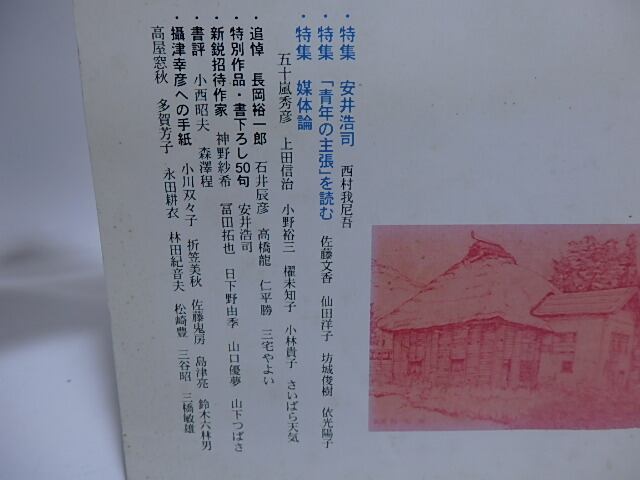 ・特集 安井浩司 西村我尼吾
・特集 「青年の主張」を読む 佐藤文香 仙田洋子 坊城俊樹 依光陽子
・特集 媒体論
五十嵐秀彦 上田信治 小野裕三 櫂未知子 小林貴子 さいばら天気
・追悼 長岡裕一郎 石井辰彦 高橋龍 仁平勝 三宅やよい
・特別作品・書下ろし50句 安井浩司
・新鋭招待作家 神野紗希 冨田拓也 日下野由季 山口優夢 山下つばさ
・書評 小西昭夫 森澤程
・攝津幸彦への手紙 小川双々子 折笠美秋 佐藤鬼房 島津亮 鈴木六林男
高屋窓秋 多賀芳子 永田耕衣 林田紀音夫 松崎豊 三谷昭 三橋敏雄